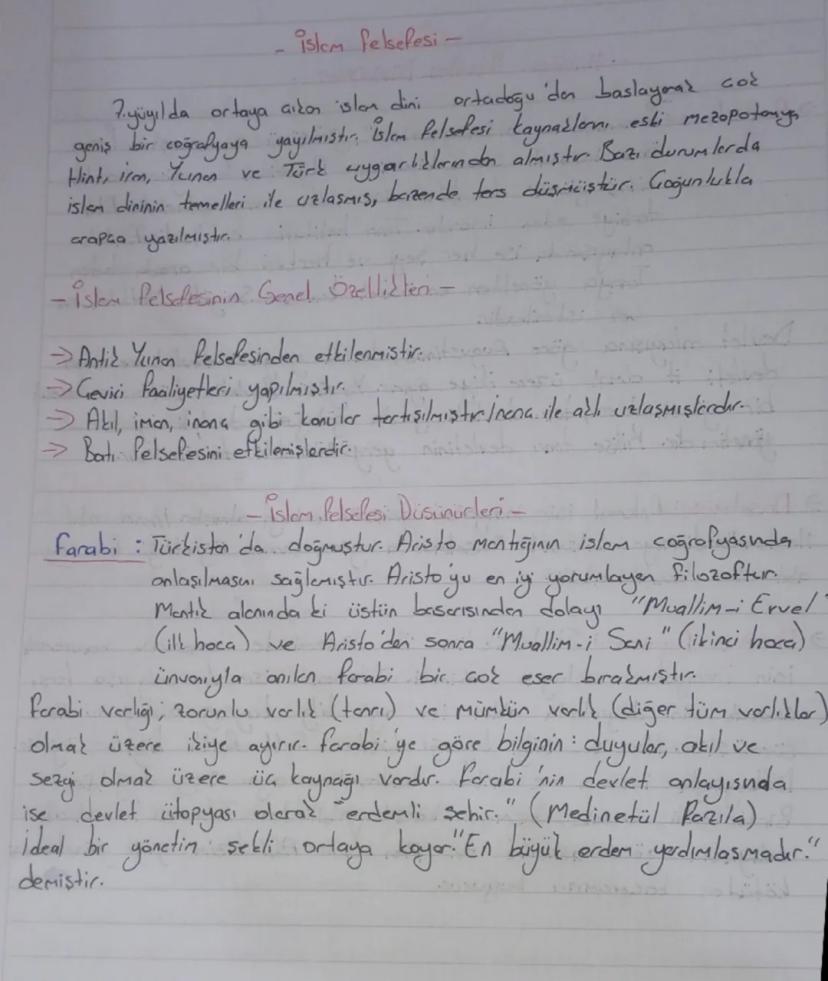 - İslam Felsefesi -
7.yüyılda ortaya çıkan islam dini ortadoğu'dan baslayarak çok
geniş bir coğrafyaya yayılmıştır. İslam Felsefesi kaynaklarını eski mezopotamya,
Hint, iran, Yunan ve Türk uygarlıklarından almıştır. Bazı durumlarda
islam dininin temelleri ile uzlaşmış, bazende ters düşmüştür. Çoğunlukla
arapça yazılmıştır.
- İslam Felsefesinin Genel Özellikleri -
→ Antik Yunan Felsefesinden etkilenmistir.
→ Çeviri Faaliyetleri yapılmıstır.
→ Akıl, iman, inanç gibi konular tartışılmıstır inanç ile aklı uzlaşmışlardır.
→ Batı Felsefesini etkilemişlerdir.
- İslam Felsefesi Düsünürleri -
Farabi : Türkistan'da doğmuştur. Aristo mantığının islam coğrafyasında
anlaşılmasını sağlamıstır. Aristo'yu en iyi yorumlayan filozoftur.
Mantık alanında ki üstün basarısından dolayı "Muallim-i Evvel"
(ilk hoca) ve Aristo'dan sonra "Muallim-i Sani" (ikinci hoca)
ünvanıyla anılan farabi bir çok eser bırakmıştır.
Farabi varlığı; zorunlu varlık (tanrı) ve mümkün varlık (diğer tüm varlıklar)
olmak üzere ikiye ayırır. farabi'ye göre bilginin : duyular, akıl ve
sezgi olmak üzere üç kaynağı vardır. Farabi'nin devlet anlayısında
ise devlet ütopyası olarak "erdemli sehir." (Medinetül Fazıla)
ideal bir yönetin sekli ortaya koyar. "En büyük erdem yardımlasmadır."
demistir.